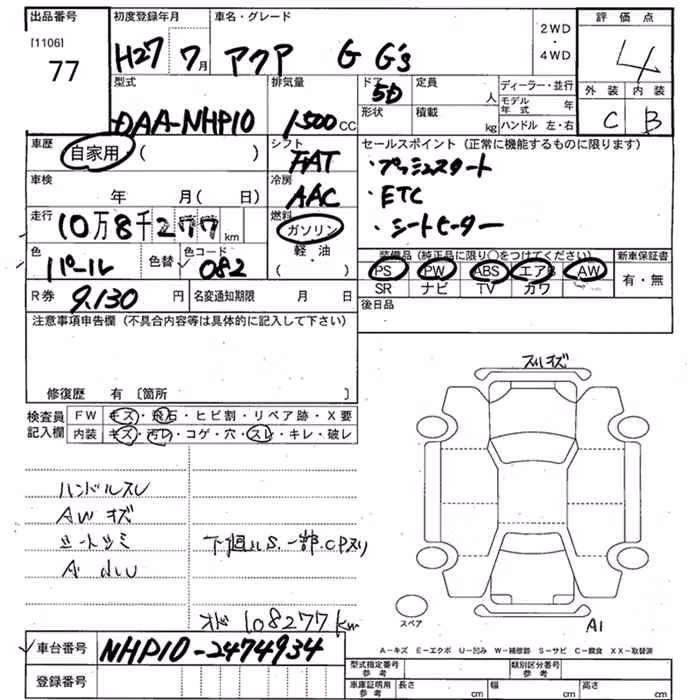 出品番号 初度登録年月 車名・グレード 2WD・4WD 評価点
[1106] 77 H27 7月 アクア G G's 4
型式 排気量 ドア 5D 定員 人 ディーラー・並行 外装 内装
DAA-NHP10 1500CC 形状 積載 kg モデル年式 年 C B
ハンドル 左・右
車歴 自家用 ( ) シフト FAT セールスポイント (正常に機能するものに限ります)
・プッシュスタート
車検 年 月( 日) 冷房 AAC ・ETC
走行 10万8千277km 燃料 ガソリン ・シートヒーター
軽・油 ( ・ )
色 パール 色替 色コード 082 装備品(純正品に限り○をつけてください) 新車保証書
PS PW ABS エアB AW 有・無
SR ナビ TV カワ
R券 9,130円 名変通知期限 月 日 後日品
注意事項申告欄(不具合内容等は具体的に記入して下さい)
修復歴 有 [箇所 ]
検査員記入欄 FW キズ・飛石・ヒビ割・リペア跡・X要
内装 キズ・汚レ・コゲ・穴・スレ・キレ・破レ
スリキズ
ハンドルスレ
AWキズ
下廻ルS.一部.CPヌリ
オド 108277km
スペア A1
A-キズ E-エクボ U-凹み W-補修跡 S-サビ C-腐食 XX-取替済
車台番号 NHP10-2474934 型式指定番号 参考 類別区分番号 参考
登録番号 車庫証明用 参考 長さ cm 幅 cm 高さ cm